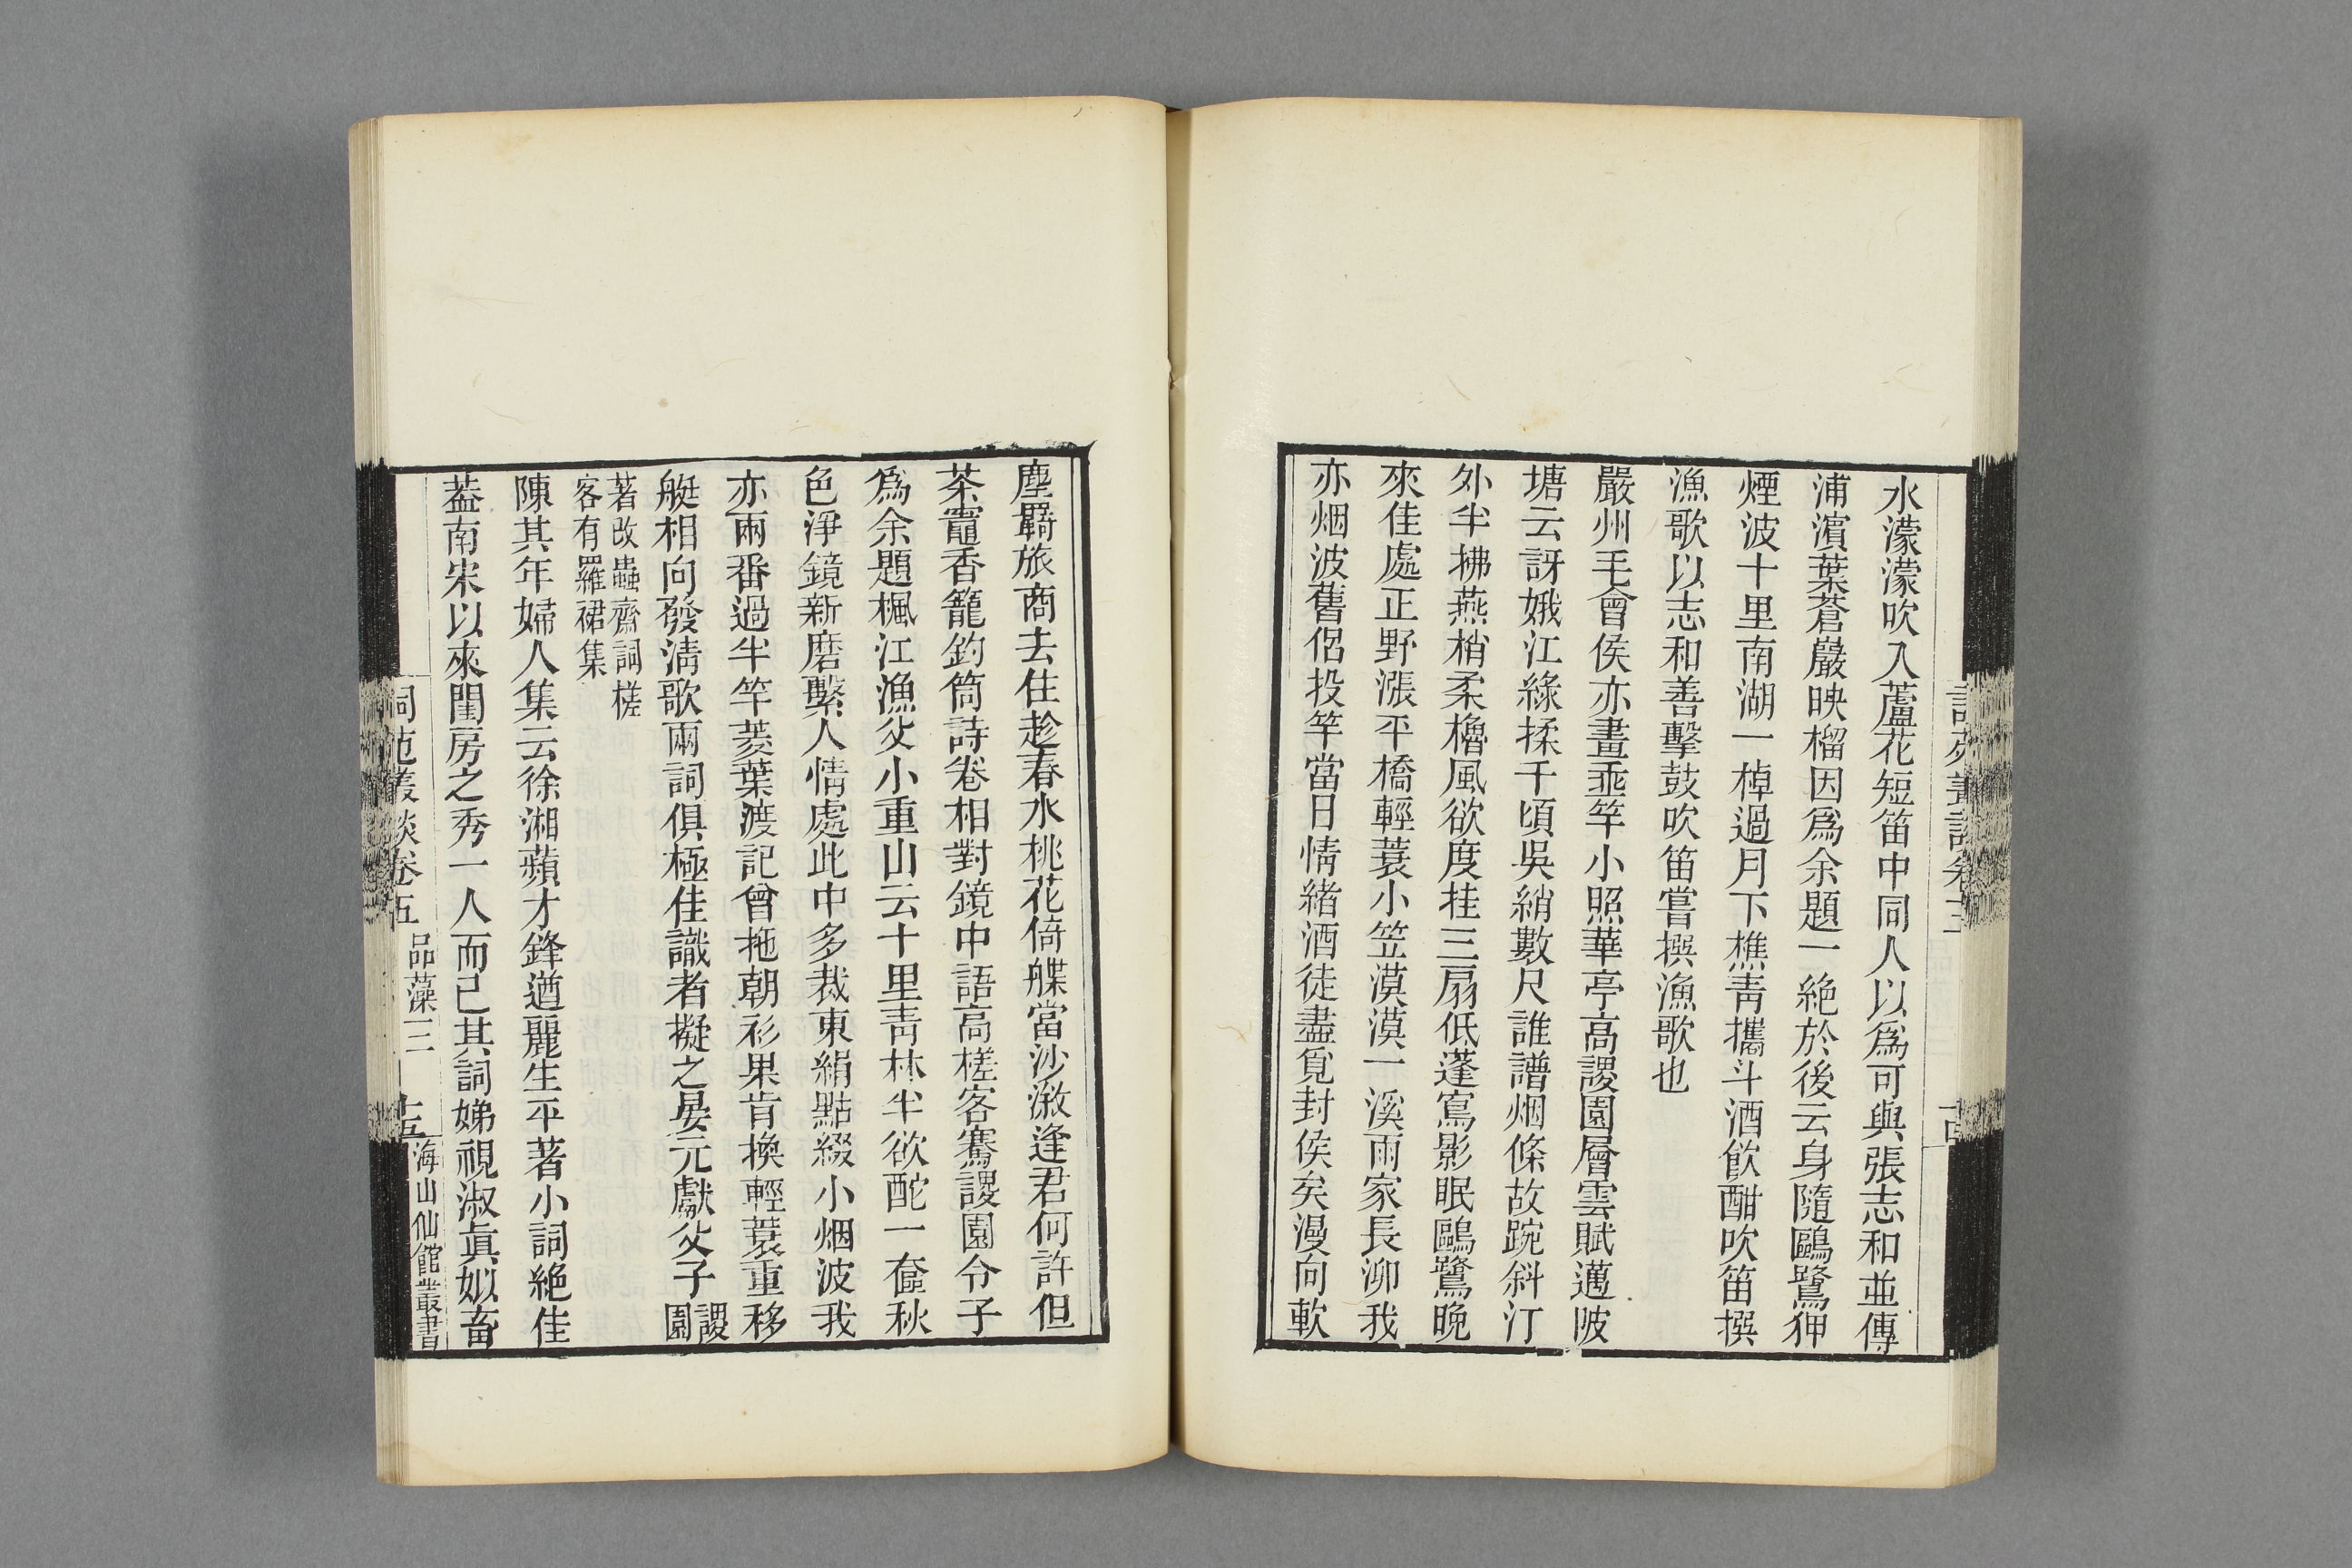 水濛濛吹入蘆花短笛中同人以爲可與張志和並傳
浦濱葉蒼巖映榴因爲余題一絶於後云身隨鷗鷺狎
煙波十里南湖一棹過月下樵靑攜斗酒飮酣吹笛撰
漁歌以志和善擊鼓吹笛嘗撰漁歌也
嚴州毛會侯亦畫垂竿小照華亭高謖園層雲賦邁陂
塘云訝娥江緑揉千頃吳綃數尺誰譜烟條故踠斜汀
外半拂燕梢柔櫓風欲度挂三扇低蓬寫影眠鷗鷺晚
來佳處正野漲平橋輕蓑小笠漠漠一溪雨家長泖我
亦烟波舊侶投竿當日情緒酒徒盡覓封侯矣漫向軟
塵羇旅商去住趁春水桃花倚艓當沙溆逢君何許但
茶竈香籠釣筒詩卷相對鏡中語高槎客騫謖園令子
爲余題楓江漁父小重山云十里靑林半欲酡一奩秋
色淨鏡新磨繫人情處此中多裁東絹點綴小烟波我
亦兩番過半竿菱葉渡記曾拖朝衫果肯換輕蓑重移
艇相向發淸歌兩詞俱極佳識者擬之晏元獻父子謖園
著改蟲齋詞槎
客有羅裙集
陳其年婦人集云徐湘蘋才鋒遒麗生平著小詞絶佳
蓋南宋以來閨房之秀一人而已其詞娣視淑眞姒畜
詞苑叢談卷五 品藻三 十五 海山仙館叢書